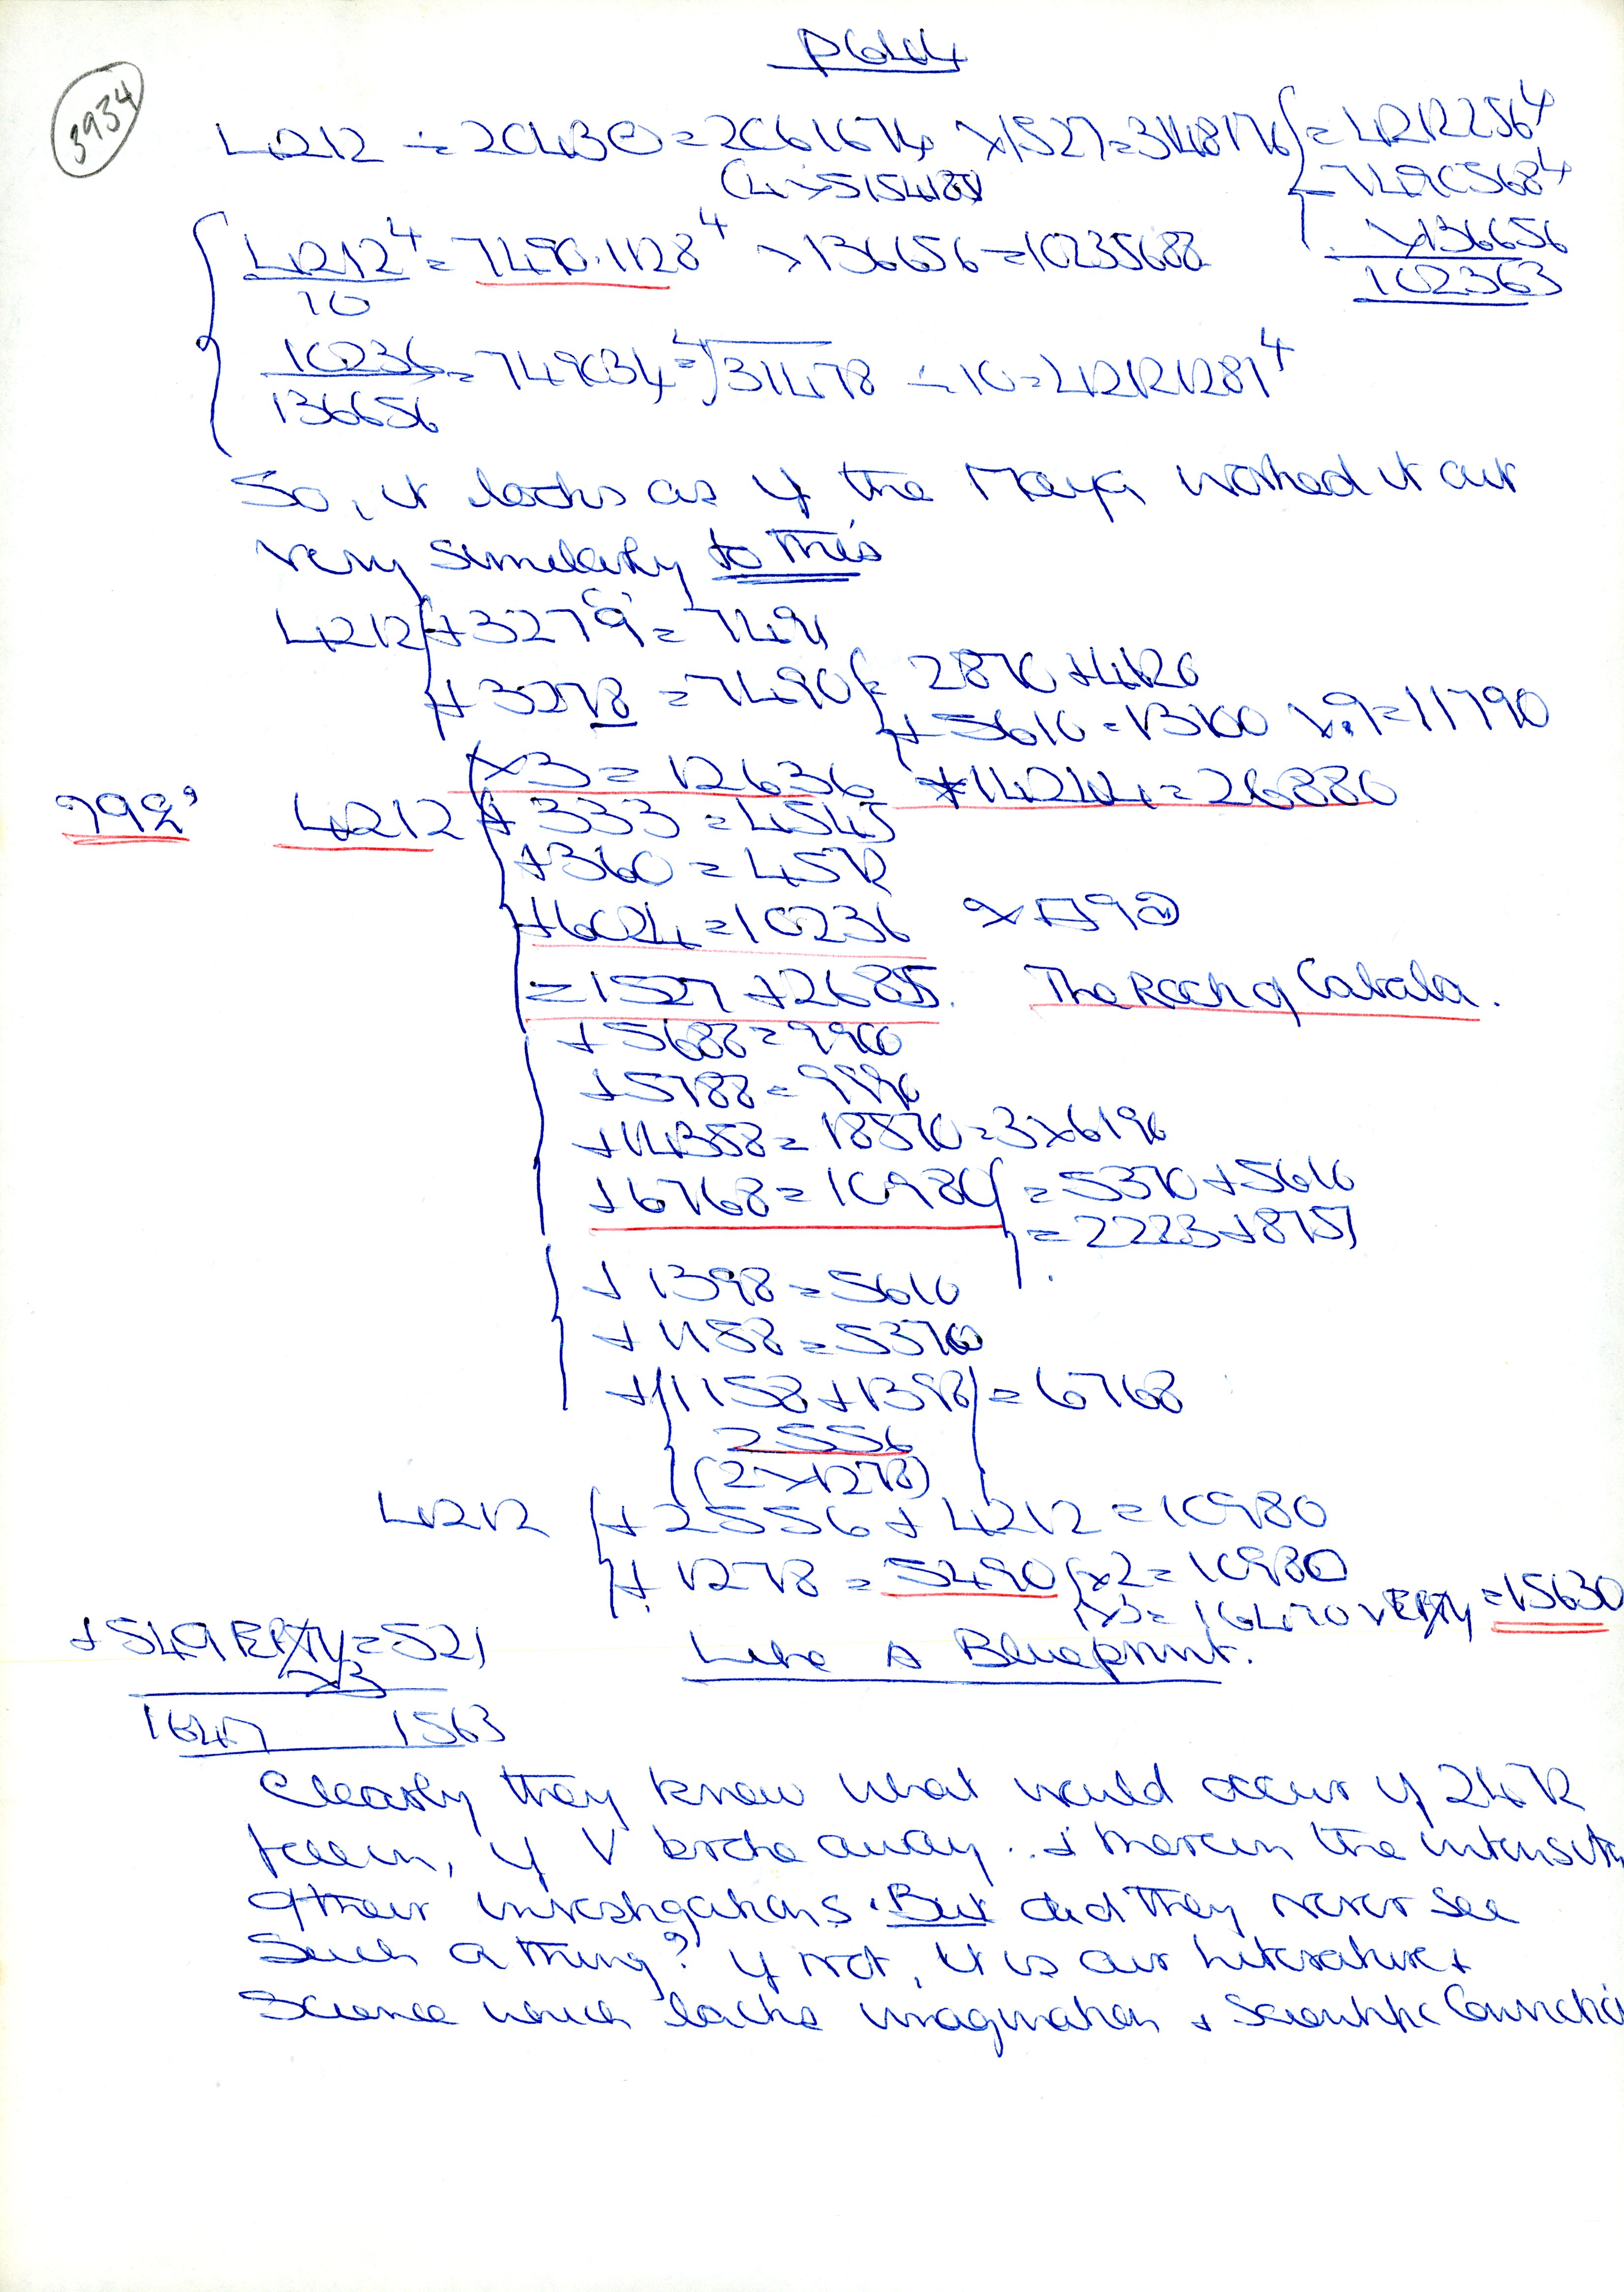 P644
3934
4212 ÷ 20430 = 2061674 × 1527 = 3148176 = 42122564
(4 × 515418) = 74905684
4212⁴ = 7490.1128⁴ × 136656 = 10235688 × 136656
10 102363
10236 = 749034 = √31478 ÷ 10 = 42121281⁴
136656
So, it looks as if the Maya worked it out
very similarly to this
4212 + 3279 = 7491
+ 3278 = 7490 = 2870 + 4120
+ 5610 = 13100 × .9 = 11790
× 3 = 12636
4212 + 333 = 4545
+ 360 = 4572
+ 6024 = 10236
= 1527 + 2685. The Rock of Cabala.
+ 5688 = 9900
+ 5788 =
+ 14358 = 18570 = 3 × 6190
+ 6768 = 10980 = 5370 + 5610
= 2223 + 8757
+ 1398 = 5610
+ 1158 = 5370
+ (1158 + 1398) = 6768
2556
(2 × 1278)
4212 + 2556 + 4212 = 10980
+ 1278 = 5490 × 2 = 10980
× 3 = 16470 = 15630
+ 549 = 521
× 3
1647 1563
Like A Blueprint.
Clearly they knew what would occur if 2472
fell in, if V broke away .. + therein the intensity
of their investigations. But did they never see
such a thing? If not, it is our literature +
Science which lacks imagination + Scientific